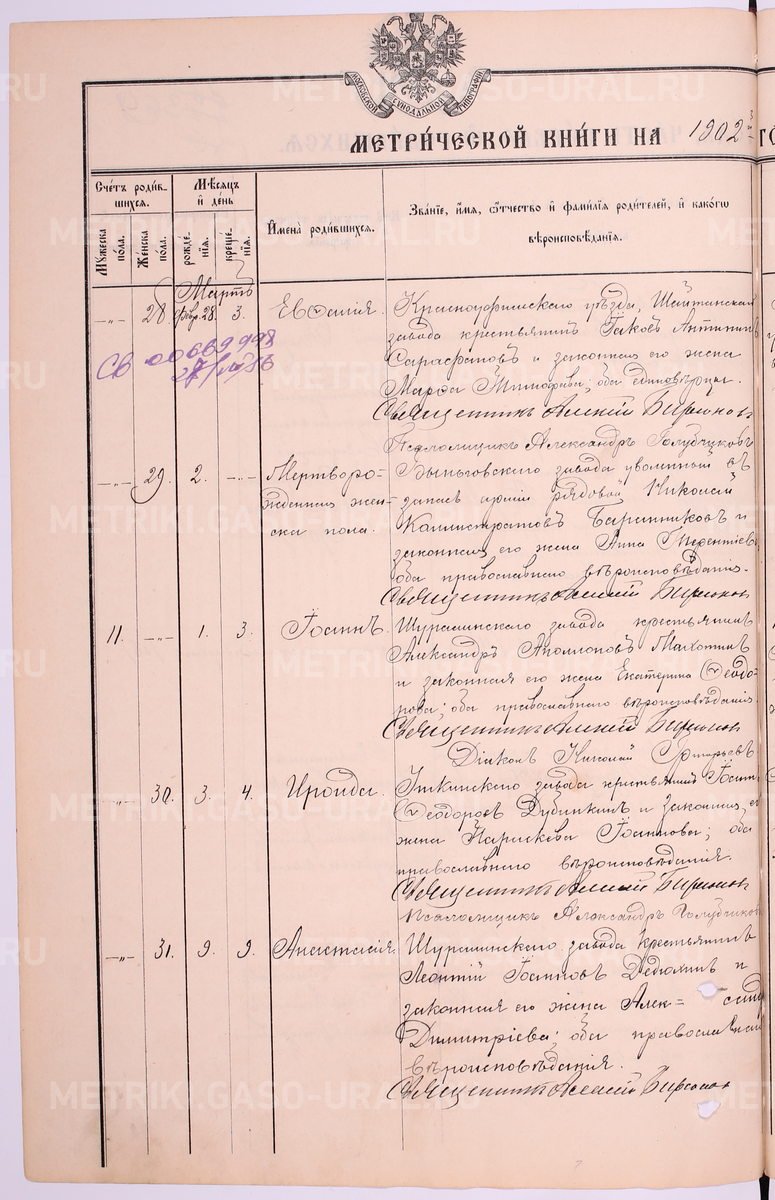 МОСКОВСКОЙ СѴНОДАЛЬНОЙ ТИПОГРАФІИ
МЕТРИ́ЧЕСКОЙ КНИ́ГИ НА 1902 й
ГО
Сче́тъ роди́в-
шихся.
Мѣ́сяцъ
и҆ де́нь
И҆мена̀ роди́вшихся.
Зва́нїе, и҆́мя, ѻ҆́тчество и҆ фами́лїя роди́телей, и҆ како́гѡ
вѣроисповѣ́данїя.
Мꙋ́жеска по́ла.
Же́нска по́ла.
рожде́нїя.
креще́нїя.
Мартъ
-„- 28. Февр. 28. 3. Евѳалія.
Красноуфимскаго уѣзда, Шайтанскаго
завода крестьянинъ Іаковъ Антипинъ
Сарафановъ и законная его жена
Марѳа Тимофѣева; оба единовѣрцы.
Священникъ Алексій Бирюковъ
Псаломщикъ Александръ Голубчиковъ
СВ 00669998
-„- 29. 2. -„-
Мертворо-
жденная жен-
ска пола.
Быньговскаго завода уволенный въ
запасъ арміи рядовой Николай
Каллистратовъ Баранниковъ и
законная его жена Анна Терентіева
оба православнаго вѣроисповѣданія.
Священникъ Алексій Бирюковъ
11. -„- 1. 3. Іоаннъ.
Шуралинскаго завода крестьянинъ
Александръ Аполлоновъ Махотинъ
и законная его жена Екатерина Ѳеодо-
рова; оба православнаго вѣроисповѣданія.
Священникъ Алексій Бирюковъ
Діаконъ Николай Григорьевъ
-„- 30. 3. 4. Ираида.
Иткинскаго завода крестьянинъ Іоаннъ
Ѳеодоровъ Дубинкинъ и законная его
жена Параскева Іоаннова; оба
православнаго вѣроисповѣданія.
Священникъ Алексій Бирюковъ
Псаломщикъ Александръ Голубчиковъ
-„- 31. 9. 9. Анастасія.
Шуралинскаго завода крестьянинъ
Леонтій Іоанновъ Дедюхинъ и
законная его жена Алек= сандра
Димитріева; оба православнаго
вѣроисповѣданія.
Священникъ Алексій Бирюковъ
METRIKI.GASO-URAL.RU